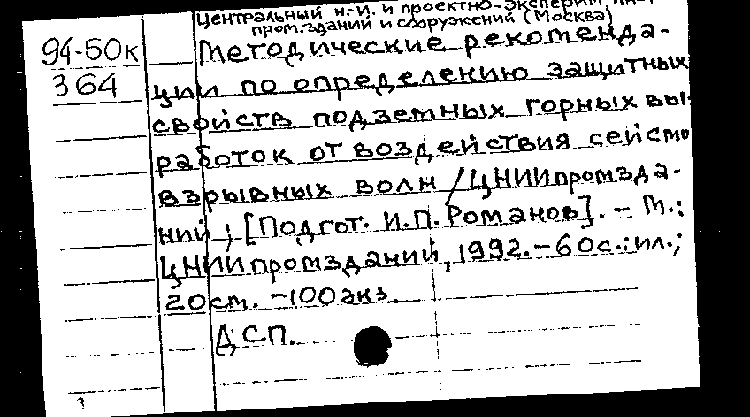 Центральный н.-и. и проектно-эксперим. ин-т
пром. зданий и сооружений (Москва)
94-50к
364
Методические рекоменда-
ции по определению защитных
свойств подземных горных вы-
работок от воздействия сейсмо
взрывных волн / ЦНИИпромзда-
ний; [Подгот. И.П. Романов]. - М.:
ЦНИИпромзданий, 1992. - 60 с.: ил.;
20 см. - 100 экз.
ДСП.